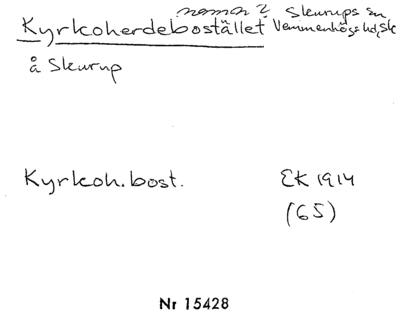 noman 2 Skurups sn
Kyrkoherdebostället Vemmenhögs hd, Sk
å Skurup
Kyrkoh.bost. EK 1914
(65)
Nr 15428